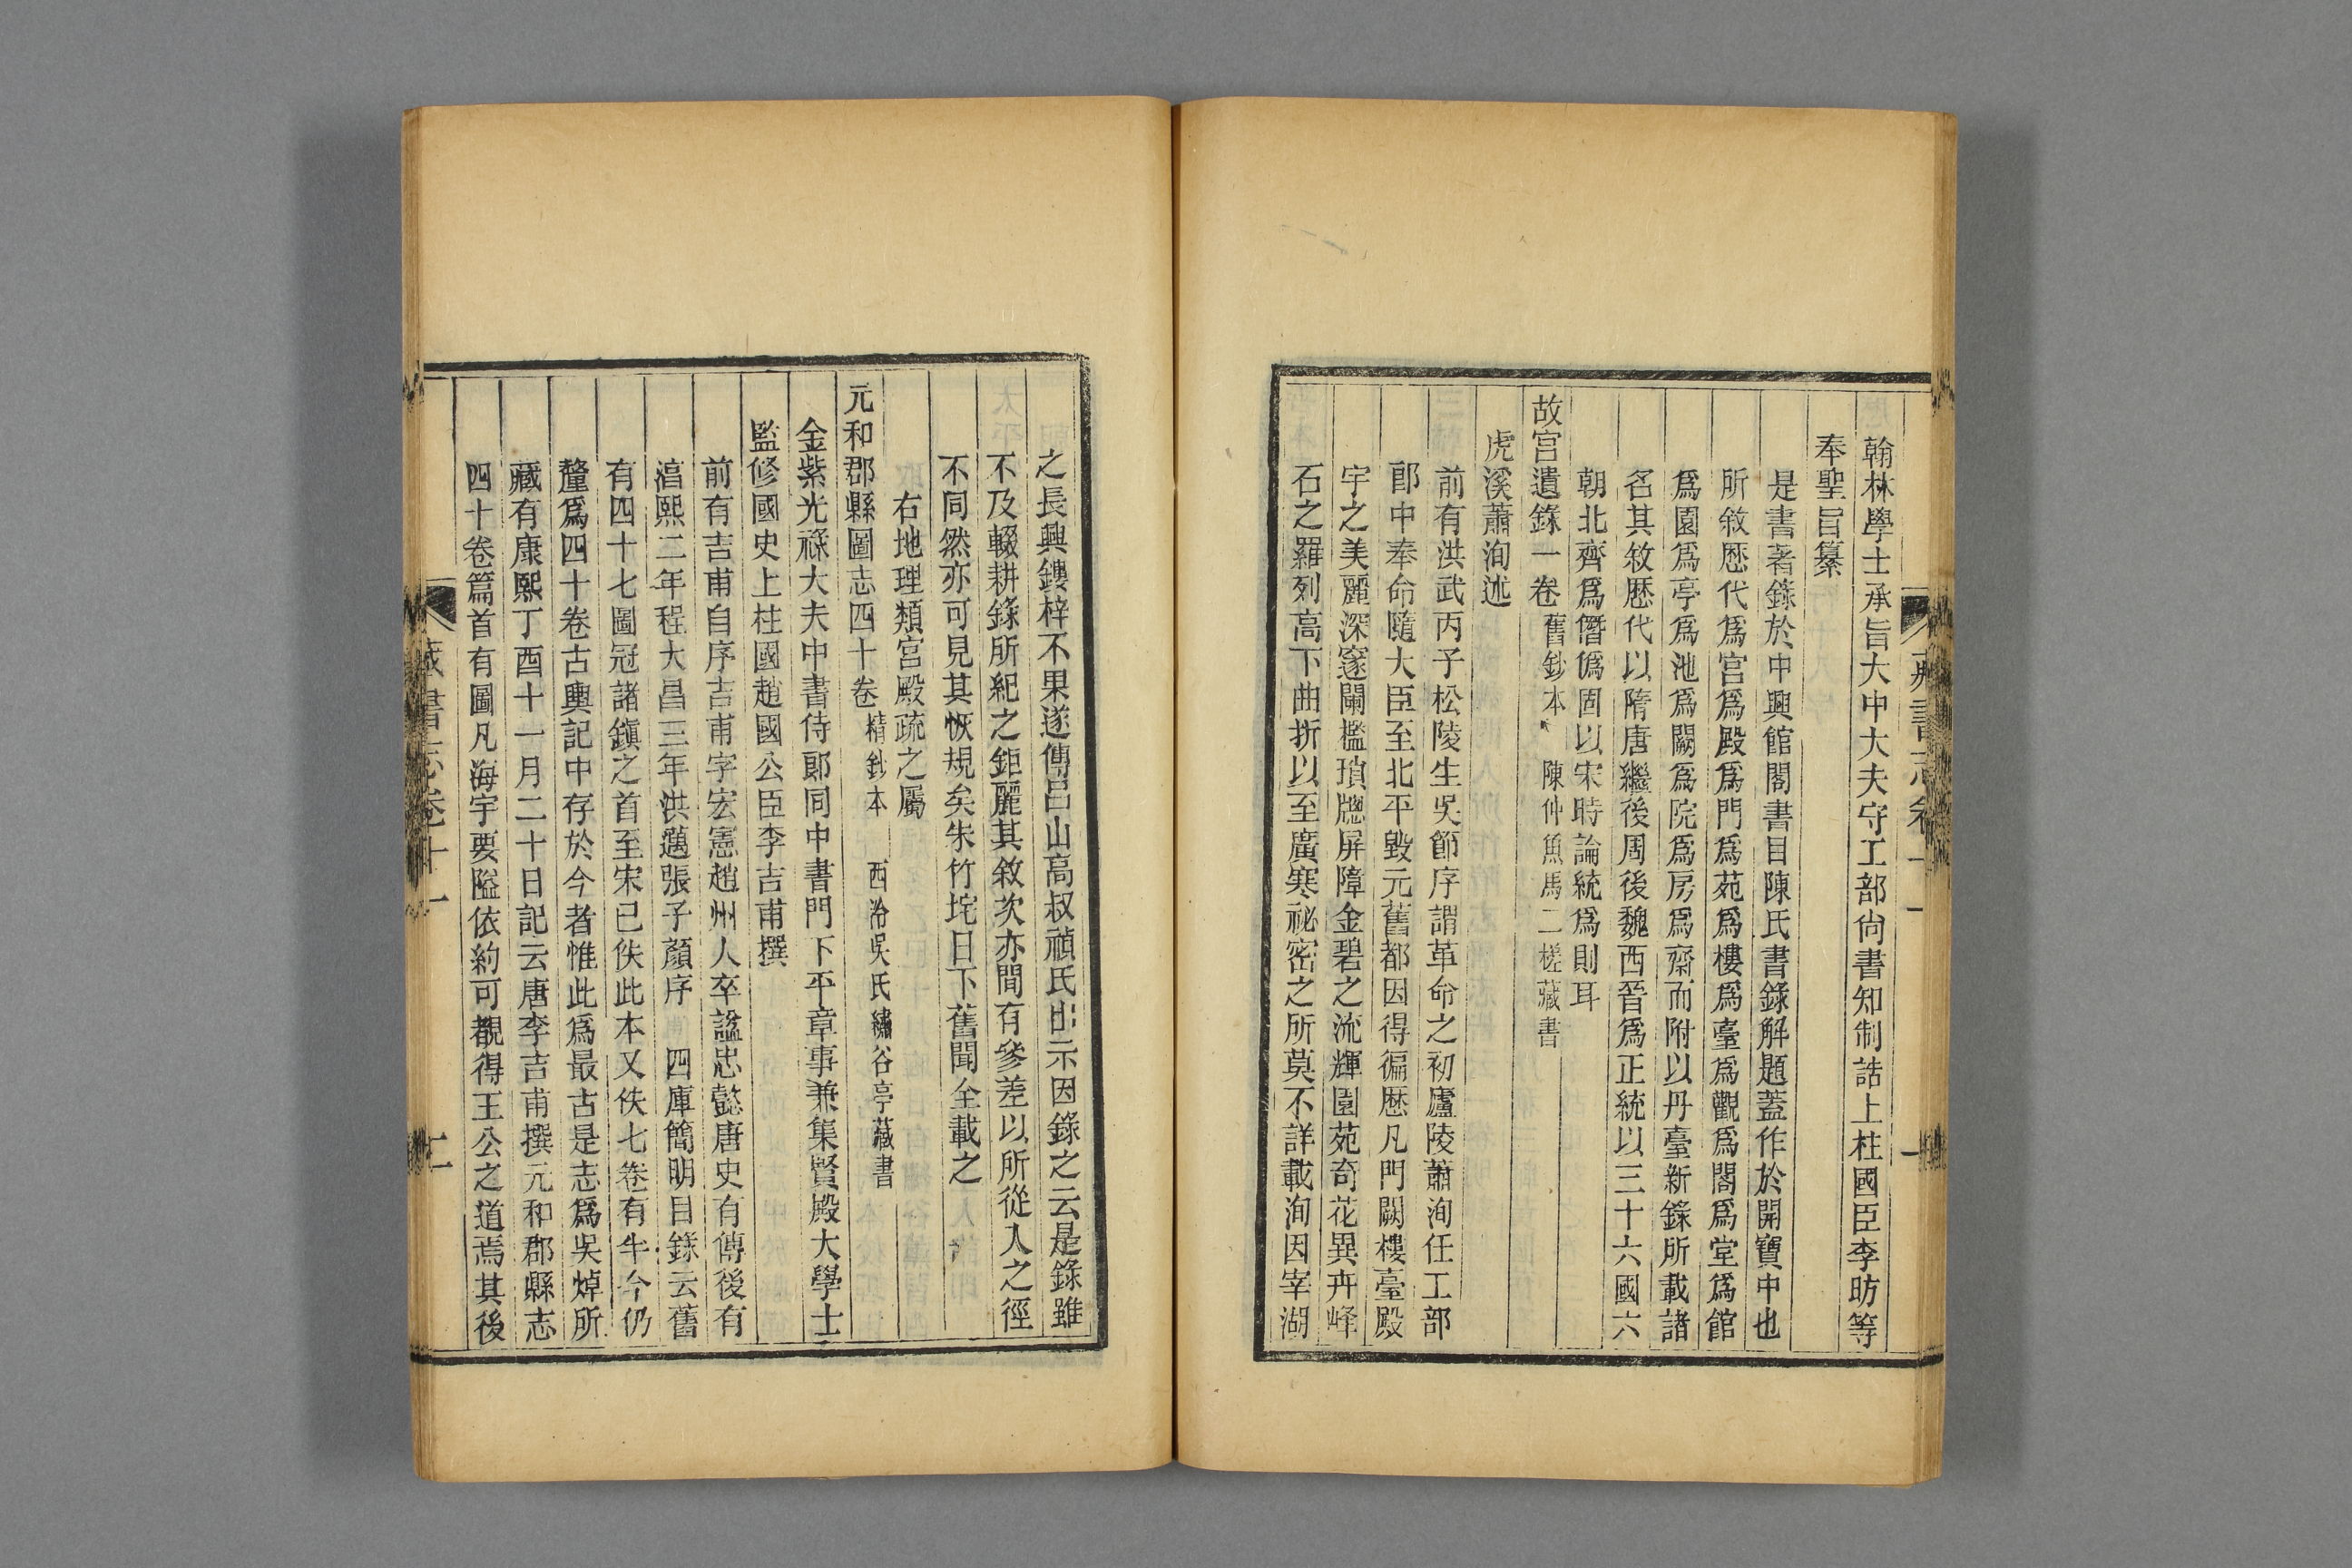 翰林學士承旨大中大夫守工部尙書知制誥上柱國臣李昉等
奉聖旨纂
是書著錄於中興館閣書目陳氏書錄解題蓋作於開寶中也
所敘歷代爲宮爲殿爲門爲苑爲樓爲臺爲觀爲閣爲堂爲館
爲園爲亭爲池爲闕爲院爲房爲齋而附以丹臺新錄所載諸
名其敘歷代以隋唐繼後周後魏西晉爲正統以三十六國六
朝北齊爲僭僞固以宋時論統爲則耳
故宮遺錄一卷 舊鈔本 陳仲魚馬二槎藏書
虎溪蕭洵述
前有洪武丙子松陵生吳節序謂革命之初廬陵蕭洵任工部
郎中奉命隨大臣至北平毀元舊都因得徧歷凡門闕樓臺殿
宇之美麗深邃闌檻瑣牕屏障金碧之流輝園苑奇花異卉峰
石之羅列高下曲折以至廣寒祕密之所莫不詳載洵因宰湖
之長興鏤梓不果遂傳呂山高叔禎氏出示因錄之云是錄雖
不及輟耕錄所紀之鉅麗其敘次亦間有參差以所從入之徑
不同然亦可見其恢規矣朱竹垞日下舊聞全載之
右地理類宮殿疏之屬
元和郡縣圖志四十卷 精鈔本 西泠吳氏繡谷亭藏書
金紫光祿大夫中書侍郎同中書門下平章事兼集賢殿大學士
監修國史上柱國趙國公臣李吉甫撰
前有吉甫自序吉甫字宏憲趙州人卒諡忠懿唐史有傳後有
淳熙二年程大昌三年洪邁張子顏序 四庫簡明目錄云舊
有四十七圖冠諸鎭之首至宋已佚此本又佚七卷有半今仍
釐爲四十卷古輿記中存於今者惟此爲最古是志爲吳焯所
藏有康熙丁酉十一月二十日記云唐李吉甫撰元和郡縣志
四十卷篇首有圖凡海宇要隘依約可覩得王公之道焉其後
藏書志卷十一